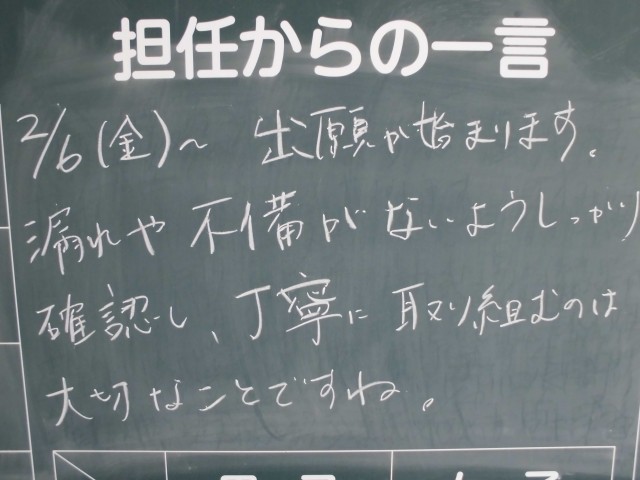 担任からの一言
2/6(金)~ 出願が始まります。
漏れや不備がないようしっかり
確認し、丁寧に取り組むのは
大切なことですね。